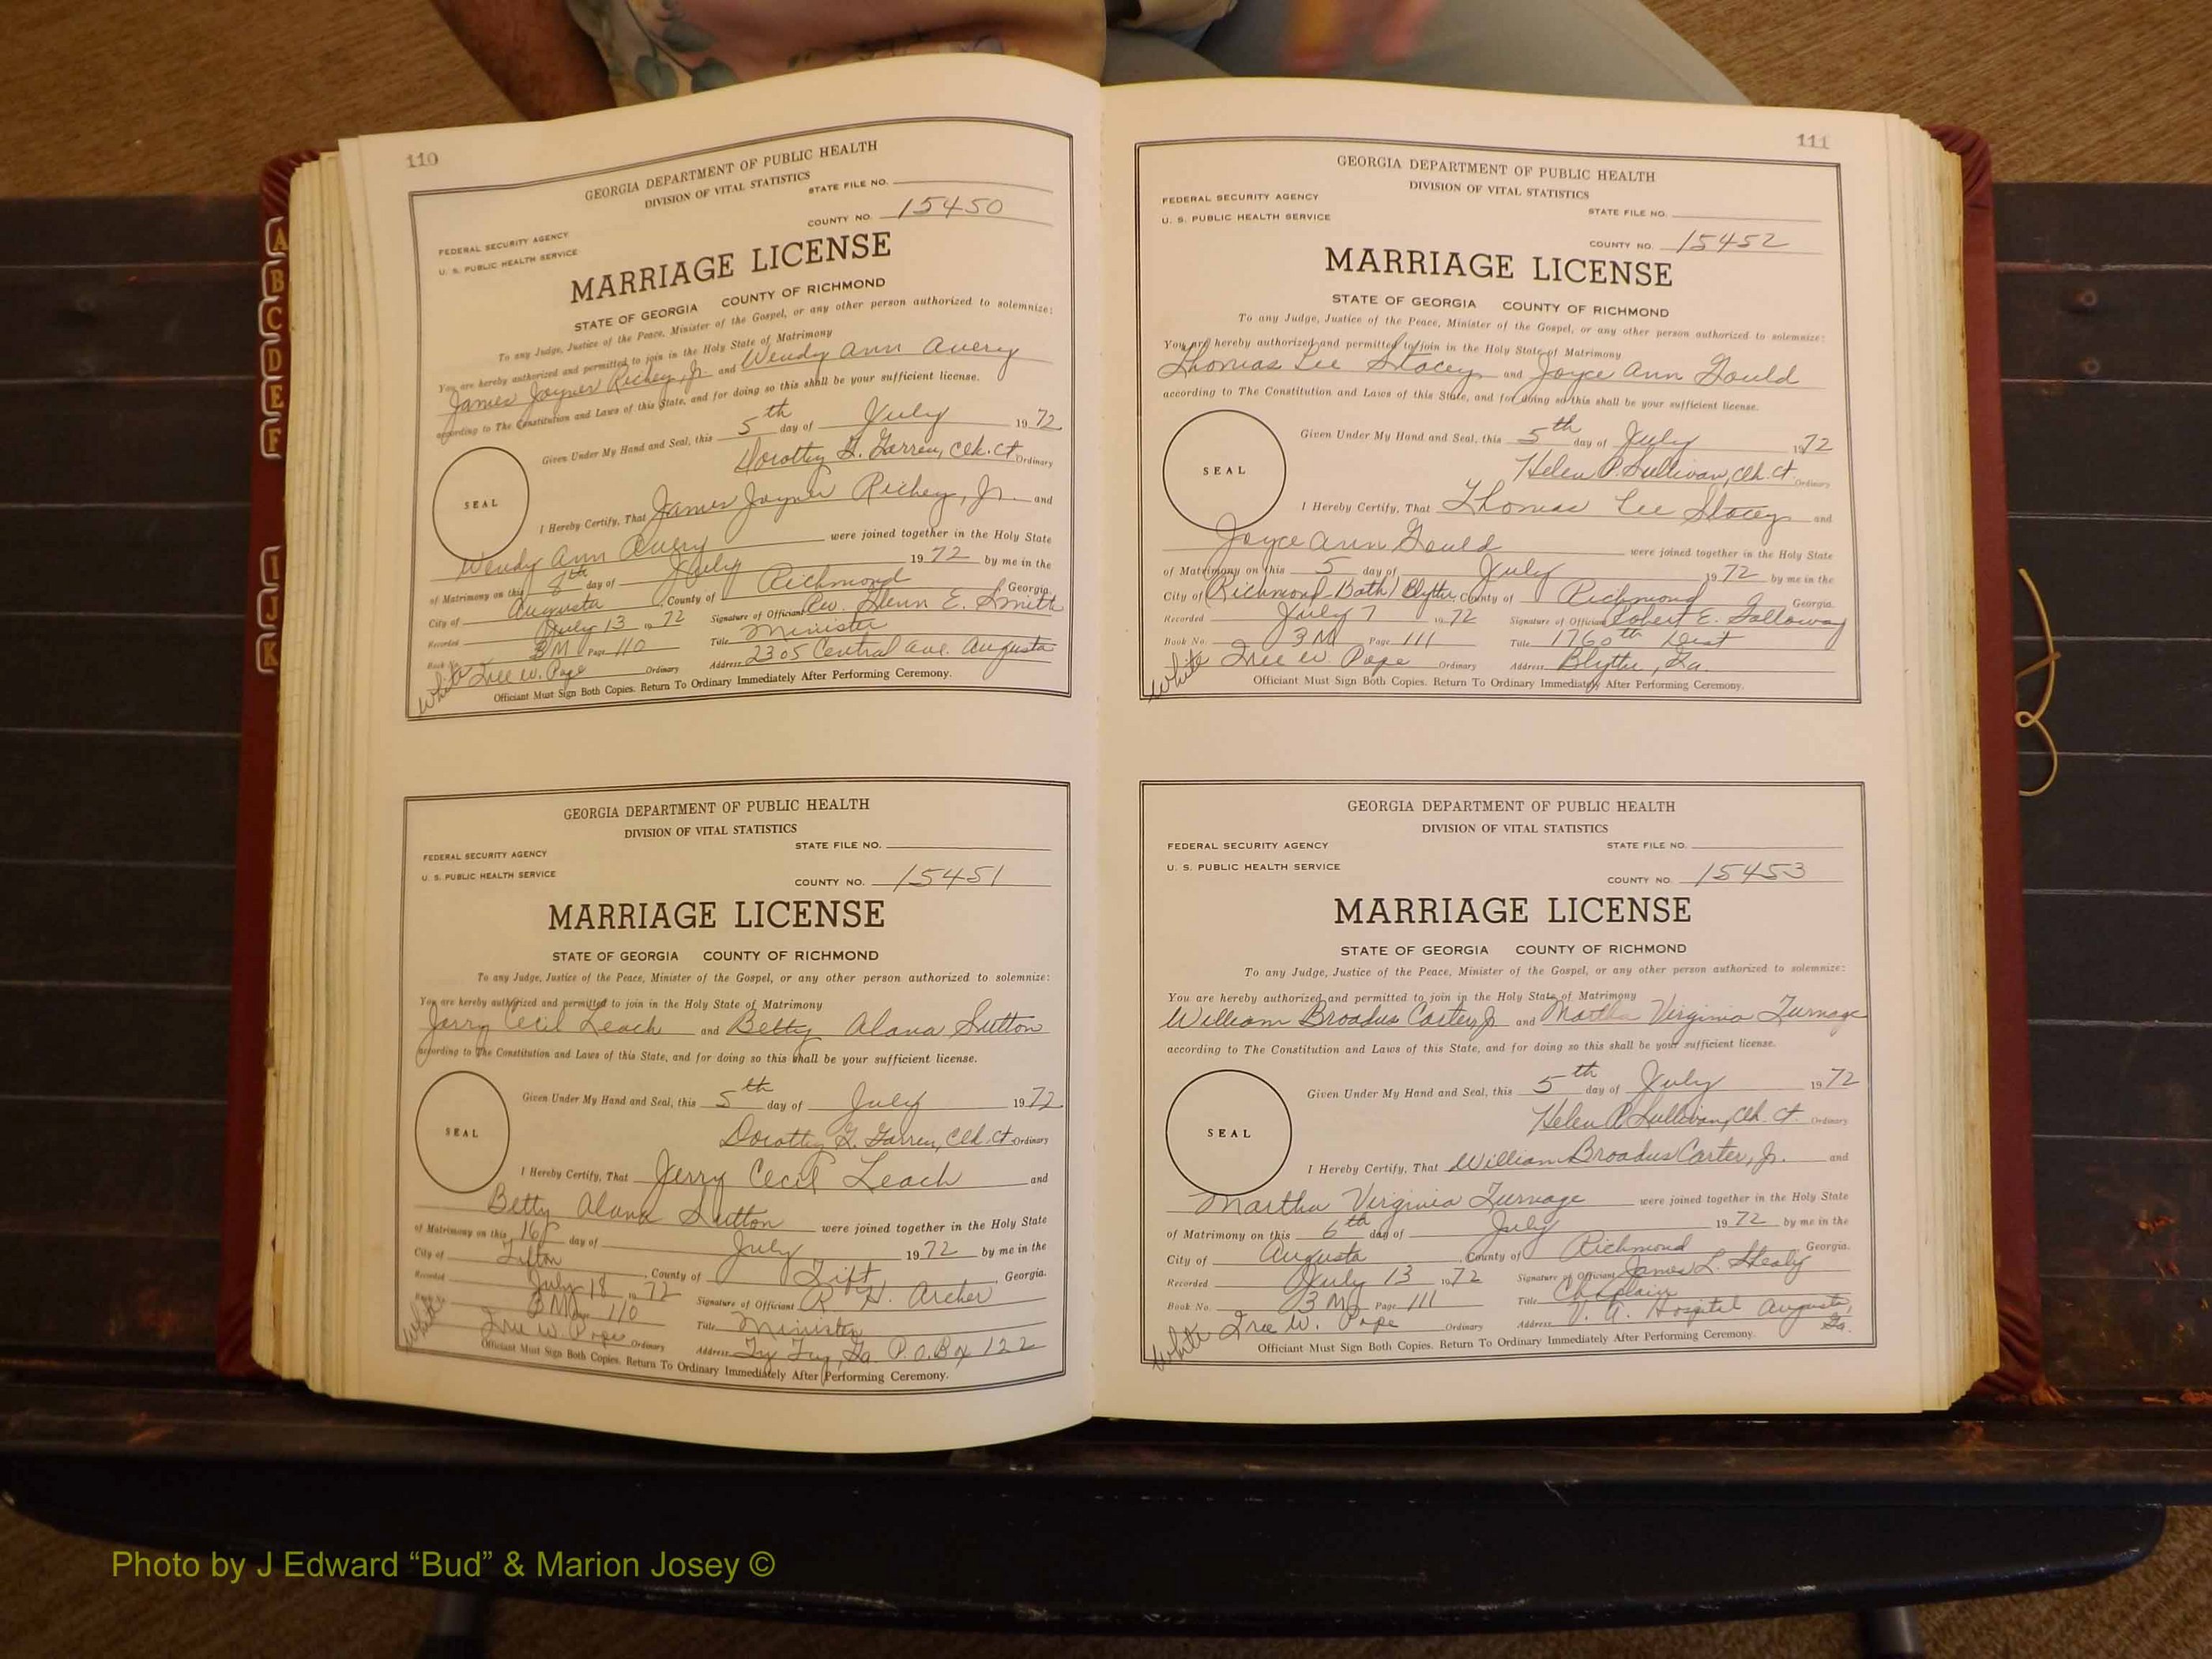 110
GEORGIA DEPARTMENT OF PUBLIC HEALTH
DIVISION OF VITAL STATISTICS
STATE FILE NO.
COUNTY NO. 15450
FEDERAL SECURITY AGENCY
U. S. PUBLIC HEALTH SERVICE
MARRIAGE LICENSE
STATE OF GEORGIA COUNTY OF RICHMOND
To any Judge, Justice of the Peace, Minister of the Gospel, or any other person authorized to solemnize:
You are hereby authorized and permitted to join in the Holy State of Matrimony
James Joyner Richey, Jr. and Wendy Ann Avery
according to The Constitution and Laws of this State, and for doing so this shall be your sufficient license.
Given Under My Hand and Seal, this 5th day of July 1972
Dorothy G. Garren, Clk. Ct. Ordinary
SEAL
I Hereby Certify, That James Joyner Richey, Jr. and
Wendy Ann Avery were joined together in the Holy State
of Matrimony on this 8th day of July 1972 by me in the
City of Augusta, County of Richmond, Georgia.
Recorded July 13 1972 Signature of Officiant Rev. Glenn E. Smith
Book No. 3M Page 110 Title Minister
White W. Pope Ordinary Address 2305 Central Ave. Augusta
Officiant Must Sign Both Copies. Return To Ordinary Immediately After Performing Ceremony.
GEORGIA DEPARTMENT OF PUBLIC HEALTH
DIVISION OF VITAL STATISTICS
STATE FILE NO.
FEDERAL SECURITY AGENCY
U. S. PUBLIC HEALTH SERVICE
COUNTY NO. 15451
MARRIAGE LICENSE
STATE OF GEORGIA COUNTY OF RICHMOND
To any Judge, Justice of the Peace, Minister of the Gospel, or any other person authorized to solemnize:
You are hereby authorized and permitted to join in the Holy State of Matrimony
Jerry Cecil Leach and Betty Alana Sutton
according to The Constitution and Laws of this State, and for doing so this shall be your sufficient license.
Given Under My Hand and Seal, this 5th day of July 1972
Dorothy G. Garren, Clk. Ct. Ordinary
SEAL
I Hereby Certify, That Jerry Cecil Leach and
Betty Alana Sutton were joined together in the Holy State
of Matrimony on this 16 day of July 1972 by me in the
City of Tifton, County of Tift, Georgia.
Recorded July 18 1972 Signature of Officiant R. H. Archer
Book No. 3M Page 110 Title Minister
White W. Pope Ordinary Address Ty Ty, Ga. P.O. Box 122
Officiant Must Sign Both Copies. Return To Ordinary Immediately After Performing Ceremony.
111
GEORGIA DEPARTMENT OF PUBLIC HEALTH
DIVISION OF VITAL STATISTICS
FEDERAL SECURITY AGENCY
U. S. PUBLIC HEALTH SERVICE
STATE FILE NO.
COUNTY NO. 15452
MARRIAGE LICENSE
STATE OF GEORGIA COUNTY OF RICHMOND
To any Judge, Justice of the Peace, Minister of the Gospel, or any other person authorized to solemnize:
You are hereby authorized and permitted to join in the Holy State of Matrimony
Thomas Lee Stacey and Joyce Ann Gould
according to The Constitution and Laws of this State, and for doing so this shall be your sufficient license.
Given Under My Hand and Seal, this 5th day of July 1972
Helen P. Sullivan, Clk. Ct. Ordinary
SEAL
I Hereby Certify, That Thomas Lee Stacey and
Joyce Ann Gould were joined together in the Holy State
of Matrimony on this 5 day of July 1972 by me in the
City of (Richmond Bath) Blythe, County of Richmond Georgia.
Recorded July 7 1972 Signature of Officiant Robert E. Galloway
Book No. 3M Page 111 Title 1760th Dist
White W. Pope Ordinary Address Blythe, Ga.
Officiant Must Sign Both Copies. Return To Ordinary Immediately After Performing Ceremony.
GEORGIA DEPARTMENT OF PUBLIC HEALTH
DIVISION OF VITAL STATISTICS
FEDERAL SECURITY AGENCY STATE FILE NO.
U. S. PUBLIC HEALTH SERVICE
COUNTY NO. 15453
MARRIAGE LICENSE
STATE OF GEORGIA COUNTY OF RICHMOND
To any Judge, Justice of the Peace, Minister of the Gospel, or any other person authorized to solemnize:
You are hereby authorized and permitted to join in the Holy State of Matrimony
William Broadus Carter, Jr and Martha Virginia Turnage
according to The Constitution and Laws of this State, and for doing so this shall be your sufficient license.
Given Under My Hand and Seal, this 5th day of July 1972
Helen P. Sullivan, Clk. Ct. Ordinary
SEAL
I Hereby Certify, That William Broadus Carter, Jr. and
Martha Virginia Turnage were joined together in the Holy State
of Matrimony on this 6th day of July 1972 by me in the
City of Augusta, County of Richmond, Georgia.
Recorded July 13 1972 Signature of Officiant James L. Healy
Book No. 3M Page 111 Title Chaplain
White W. Pope Ordinary Address V. A. Hospital Augusta, Ga.
Officiant Must Sign Both Copies. Return To Ordinary Immediately After Performing Ceremony.
A
B
C
D
E
F
I
J
K
Photo by J Edward “Bud” & Marion Josey ©